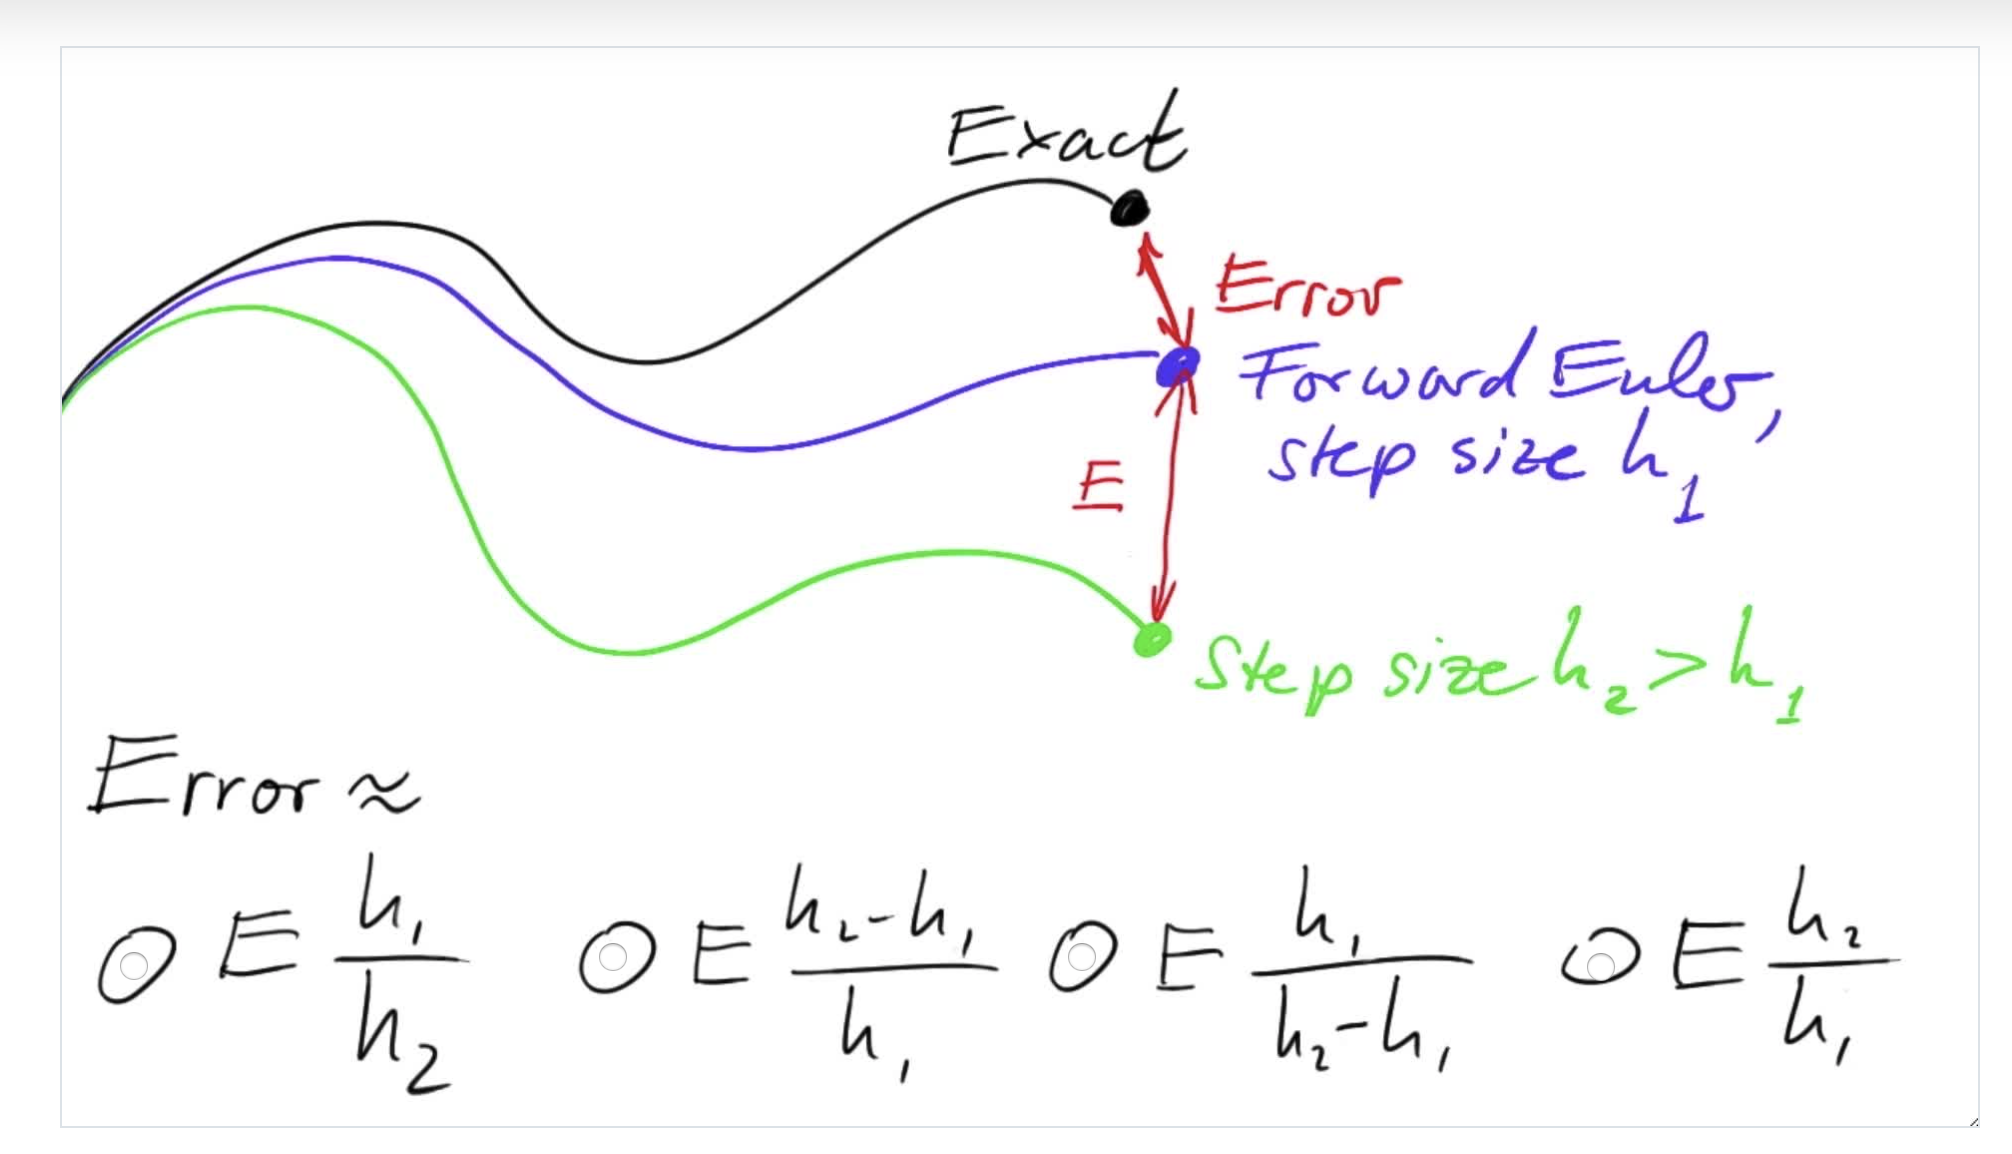 Exact
Error
Forward Euler,
step size h₁
E
Step size h₂ > h₁
Error ≈
E h₁/h₂ E (h₂-h₁)/h₁ E h₁/(h₂-h₁) E h₂/h₁